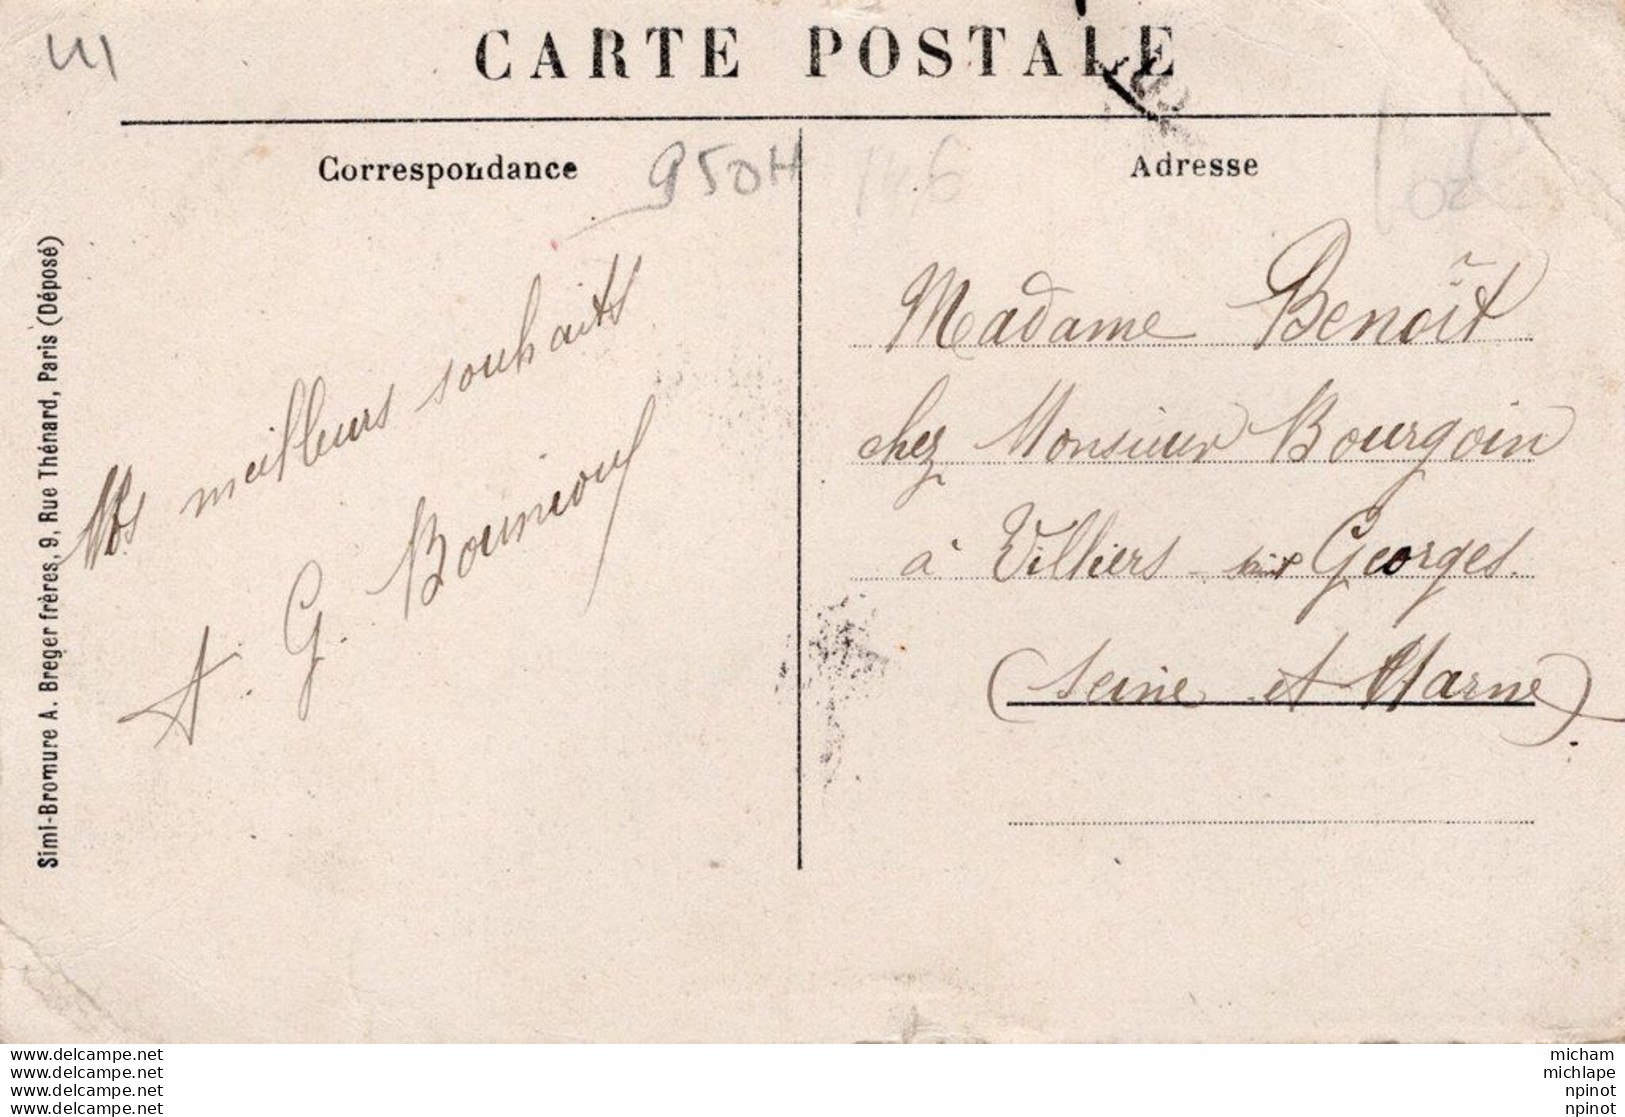 CARTE POSTALE
Correspondance
950H
146
Adresse
Simi-Bromure A. Breger frères, 9, Rue Thénard, Paris (Déposé)
Nos meilleurs souhaits
A. G.
Madame Benoît
chez Monsieur Bourgoin
à Villiers - Saint Georges
(Seine et Marne)
www.delcampe.net
www.delcampe.net
www.delcampe.net
www.delcampe.net
micham
michlape
npinot
npinot